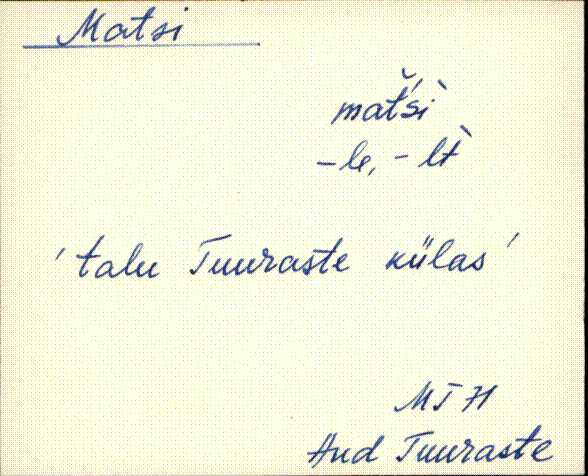 Matsi
mat̆'śì
-le, - lt̀
'talu Tuuraste külas'
MT 71
And Tuuraste